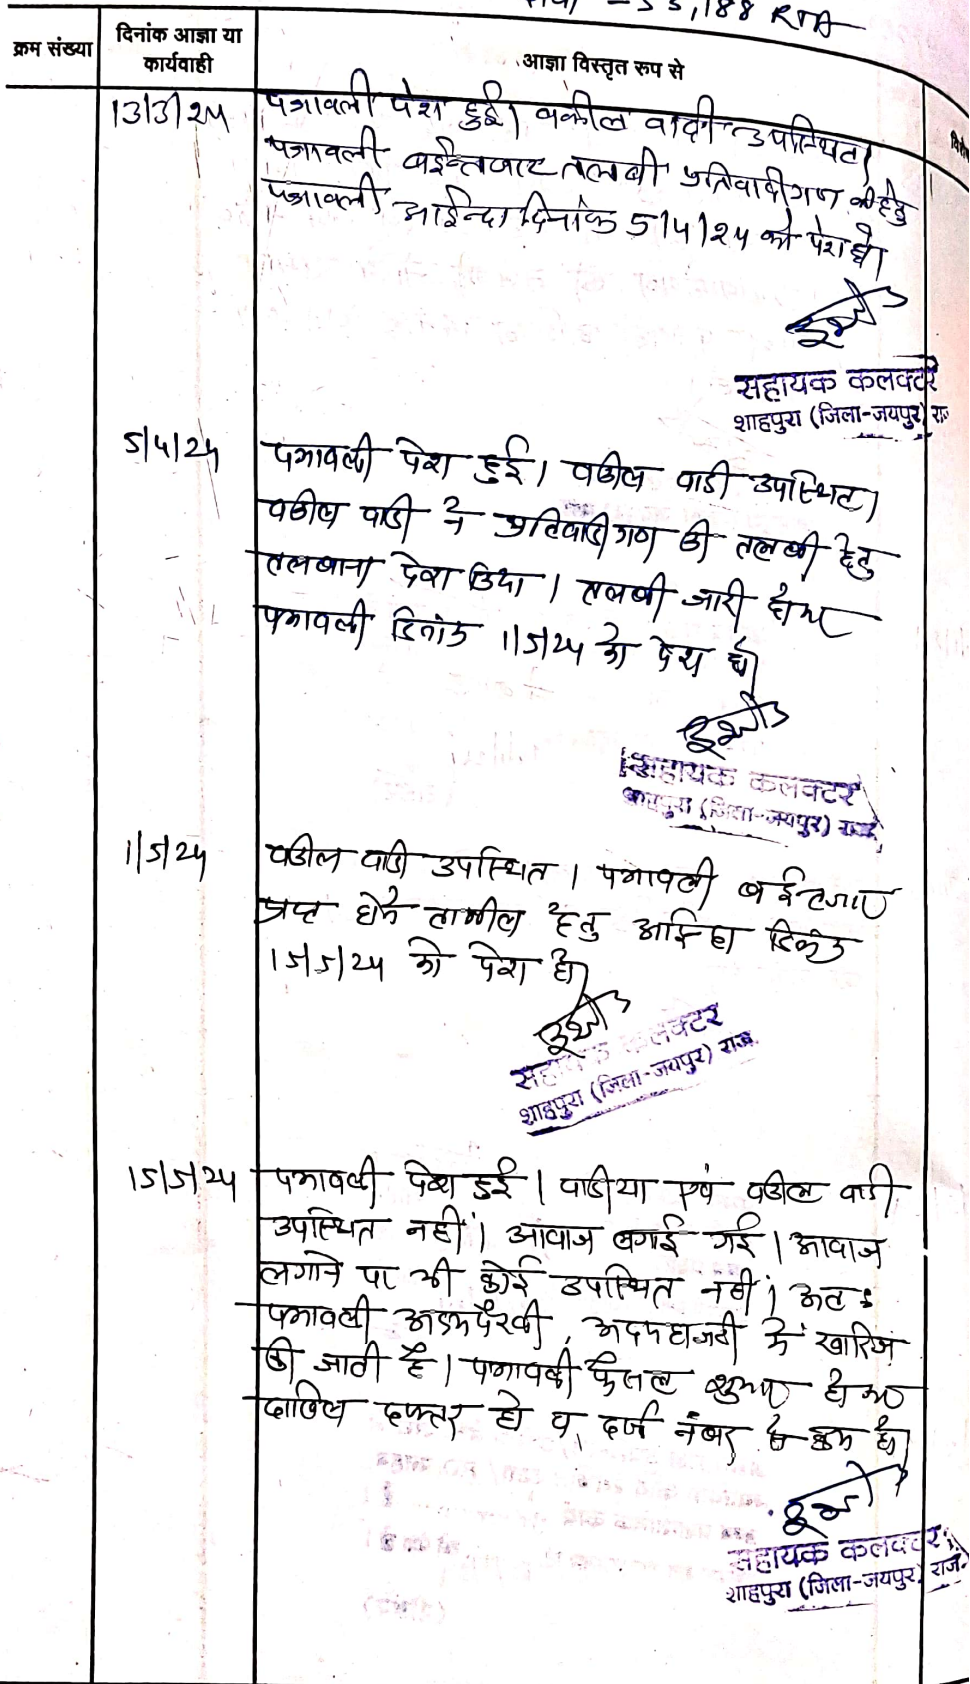 53,188 RTA
क्रम संख्या
दिनांक आज्ञा या
कार्यवाही
आज्ञा विस्तृत रूप से
13/3/24
पत्रावली पेश हुई। वकील वादी उपस्थित।
पत्रावली बईन्तजार तलबी प्रतिवादीगण की हेतु
पत्रावली आईन्दा दिनांक 5/4/24 को पेश हो।
सहायक कलक्टर
शाहपुरा (जिला-जयपुर) राज
5/4/24
पत्रावली पेश हुई। वकील वादी उपस्थित।
वकील वादी ने प्रतिवादीगण की तलबी हेतु
तलबाना पेश किया। तलबी जारी होकर
पत्रावली दिनांक 1/5/24 को पेश हो।
सहायक कलक्टर
शाहपुरा (जिला-जयपुर) राज.
1/5/24
वकील वादी उपस्थित। पत्रावली बईन्तजार
प्राप्त होने तामील हेतु आईन्दा दिनांक
15/5/24 को पेश हो।
सहायक कलक्टर
शाहपुरा (जिला-जयपुर) राज.
15/5/24
पत्रावली पेश हुई। वादीया एवं वकील वादी
उपस्थित नहीं। आवाज लगाई गई। आवाज
लगाने पर भी कोई उपस्थित नहीं। अतः
पत्रावली अदमपैरवी, अदमहाजरी में खारिज
की जाती है। पत्रावली फैसल शुमार होकर
दाखिल दफ्तर हो व दर्ज नंबर से कम हो।
सहायक कलक्टर
शाहपुरा (जिला-जयपुर) राज.